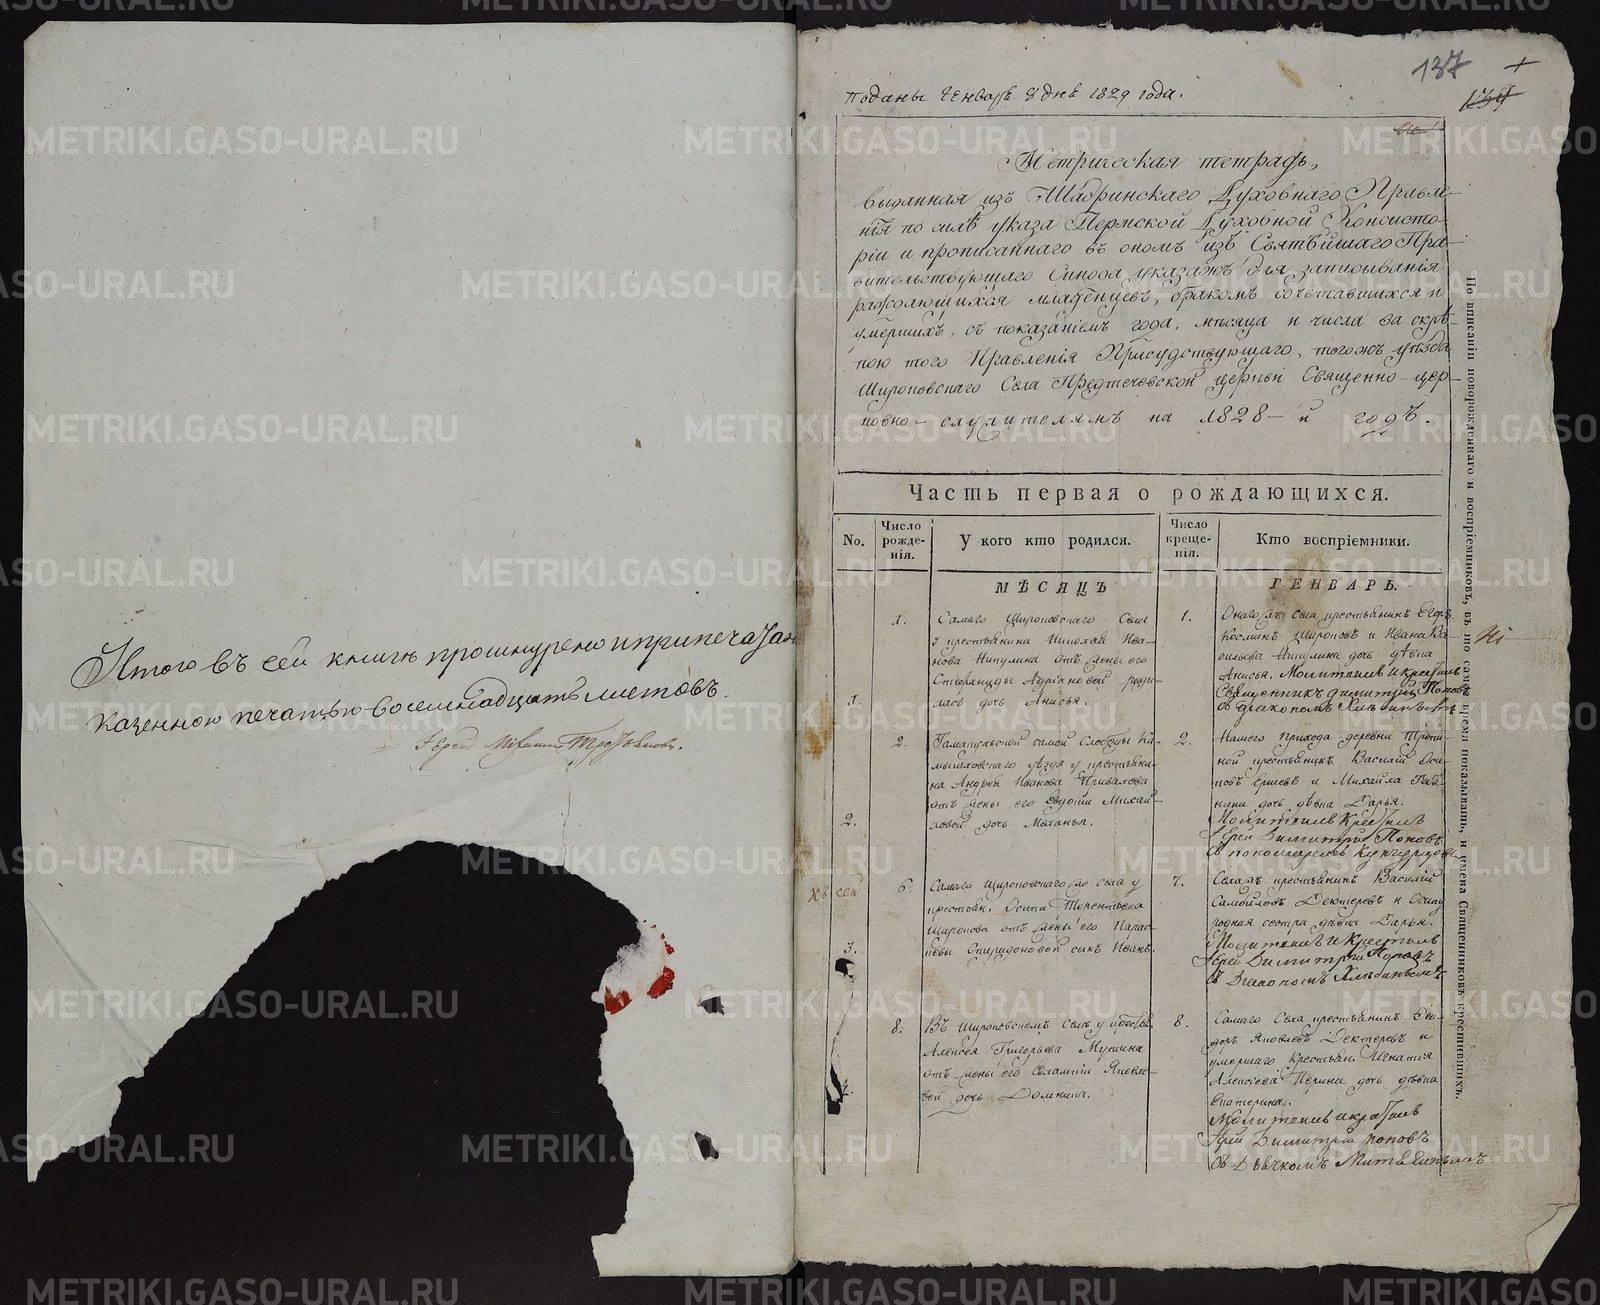 Итого въ сей книгѣ прошнурено и припечатан
казенною печатью восемнадцать листовъ.
Іерей
137
Поданы Генваря дня 1829 года.
Метрическая тетрадь,
выданная изъ Шадринскаго Духовнаго Правле-
нія по силѣ указа Пермской Духовной Консисто-
ріи и прописаннаго въ ономъ изъ Святѣйшаго Пра-
вительствующаго Синода указахъ для записыванія
раждающихся младенцевъ, бракомъ сочетавшихся и
умершихъ, съ показаніемъ года, мѣсяца и числа за скрѣ-
пою того Правленія Присудствующаго, тогожъ уѣзда
Широковскаго Села Предтечевской церкви Священно-цер-
ковно-служителямъ на 1828-й годъ.
Часть первая о рождающихся.
No.
Число рожде-нія.
У кого кто родился.
Число креще-нія.
Кто воспріемники.
МѢСЯЦЪ
ГЕНВАРЬ.
1.
1.
Самаго Широковскаго Села
у крестьянина Николая Ива-
нова Никулина отъ жены его
Степаниды Адріановой роди-
лась дочь Анисья.
1.
Онагожъ села крестьянинъ Егоръ
Косминъ Широковъ и Ивана Ва-
сильева Никулина дочь дѣвка
Анисья. Молитвилъ и крестилъ
Священникъ Димитрій Поповъ
2.
2.
самой Слободы Ка-
мышловскаго уѣзда у крестьяни-
на Андрея Иванова Привалова
отъ жены его Евдокіи Михай-
ловой дочь Маланья.
2.
Нашего прихода деревни
крестьянинъ Василій Оси-
повъ и Михайла
дочь дѣвка Дарья.
Молитвилъ и крестилъ
Іерей Димитрій Поповъ
съ пономаремъ
3.
6.
Самаго Широковскаго же села у
крестьян. Осипа Терентьева
Широкова отъ жены его Парас-
кевы Спиридоновой сынъ Иванъ.
7.
Села жъ крестьянинъ Василій
Самойловъ Дектеревъ и Осипу
родная сестра дѣвка Дарья.
Молитвилъ и крестилъ
Іерей Димитрій Поповъ
4.
8.
Въ Широковскомъ Селѣ у крестьян.
Алексея Григорьева Мухина
отъ жены его Евлампіи Яковле-
вой дочь Домника.
8.
Самаго Села крестьянинъ Ѳео-
доръ Яковлевъ Дектеревъ и
умершаго крестьян. Игнатія
Алексѣева дочь дѣвка
Екатерина.
Молитвилъ и крестилъ
Іерей Димитрій Поповъ
съ Дьячкомъ
По вписаніи новорожденнаго и воспріемниковъ, въ то самое время показывать, и имена Священниковъ крестившихъ.
METRIKI.GASO-URAL.RU